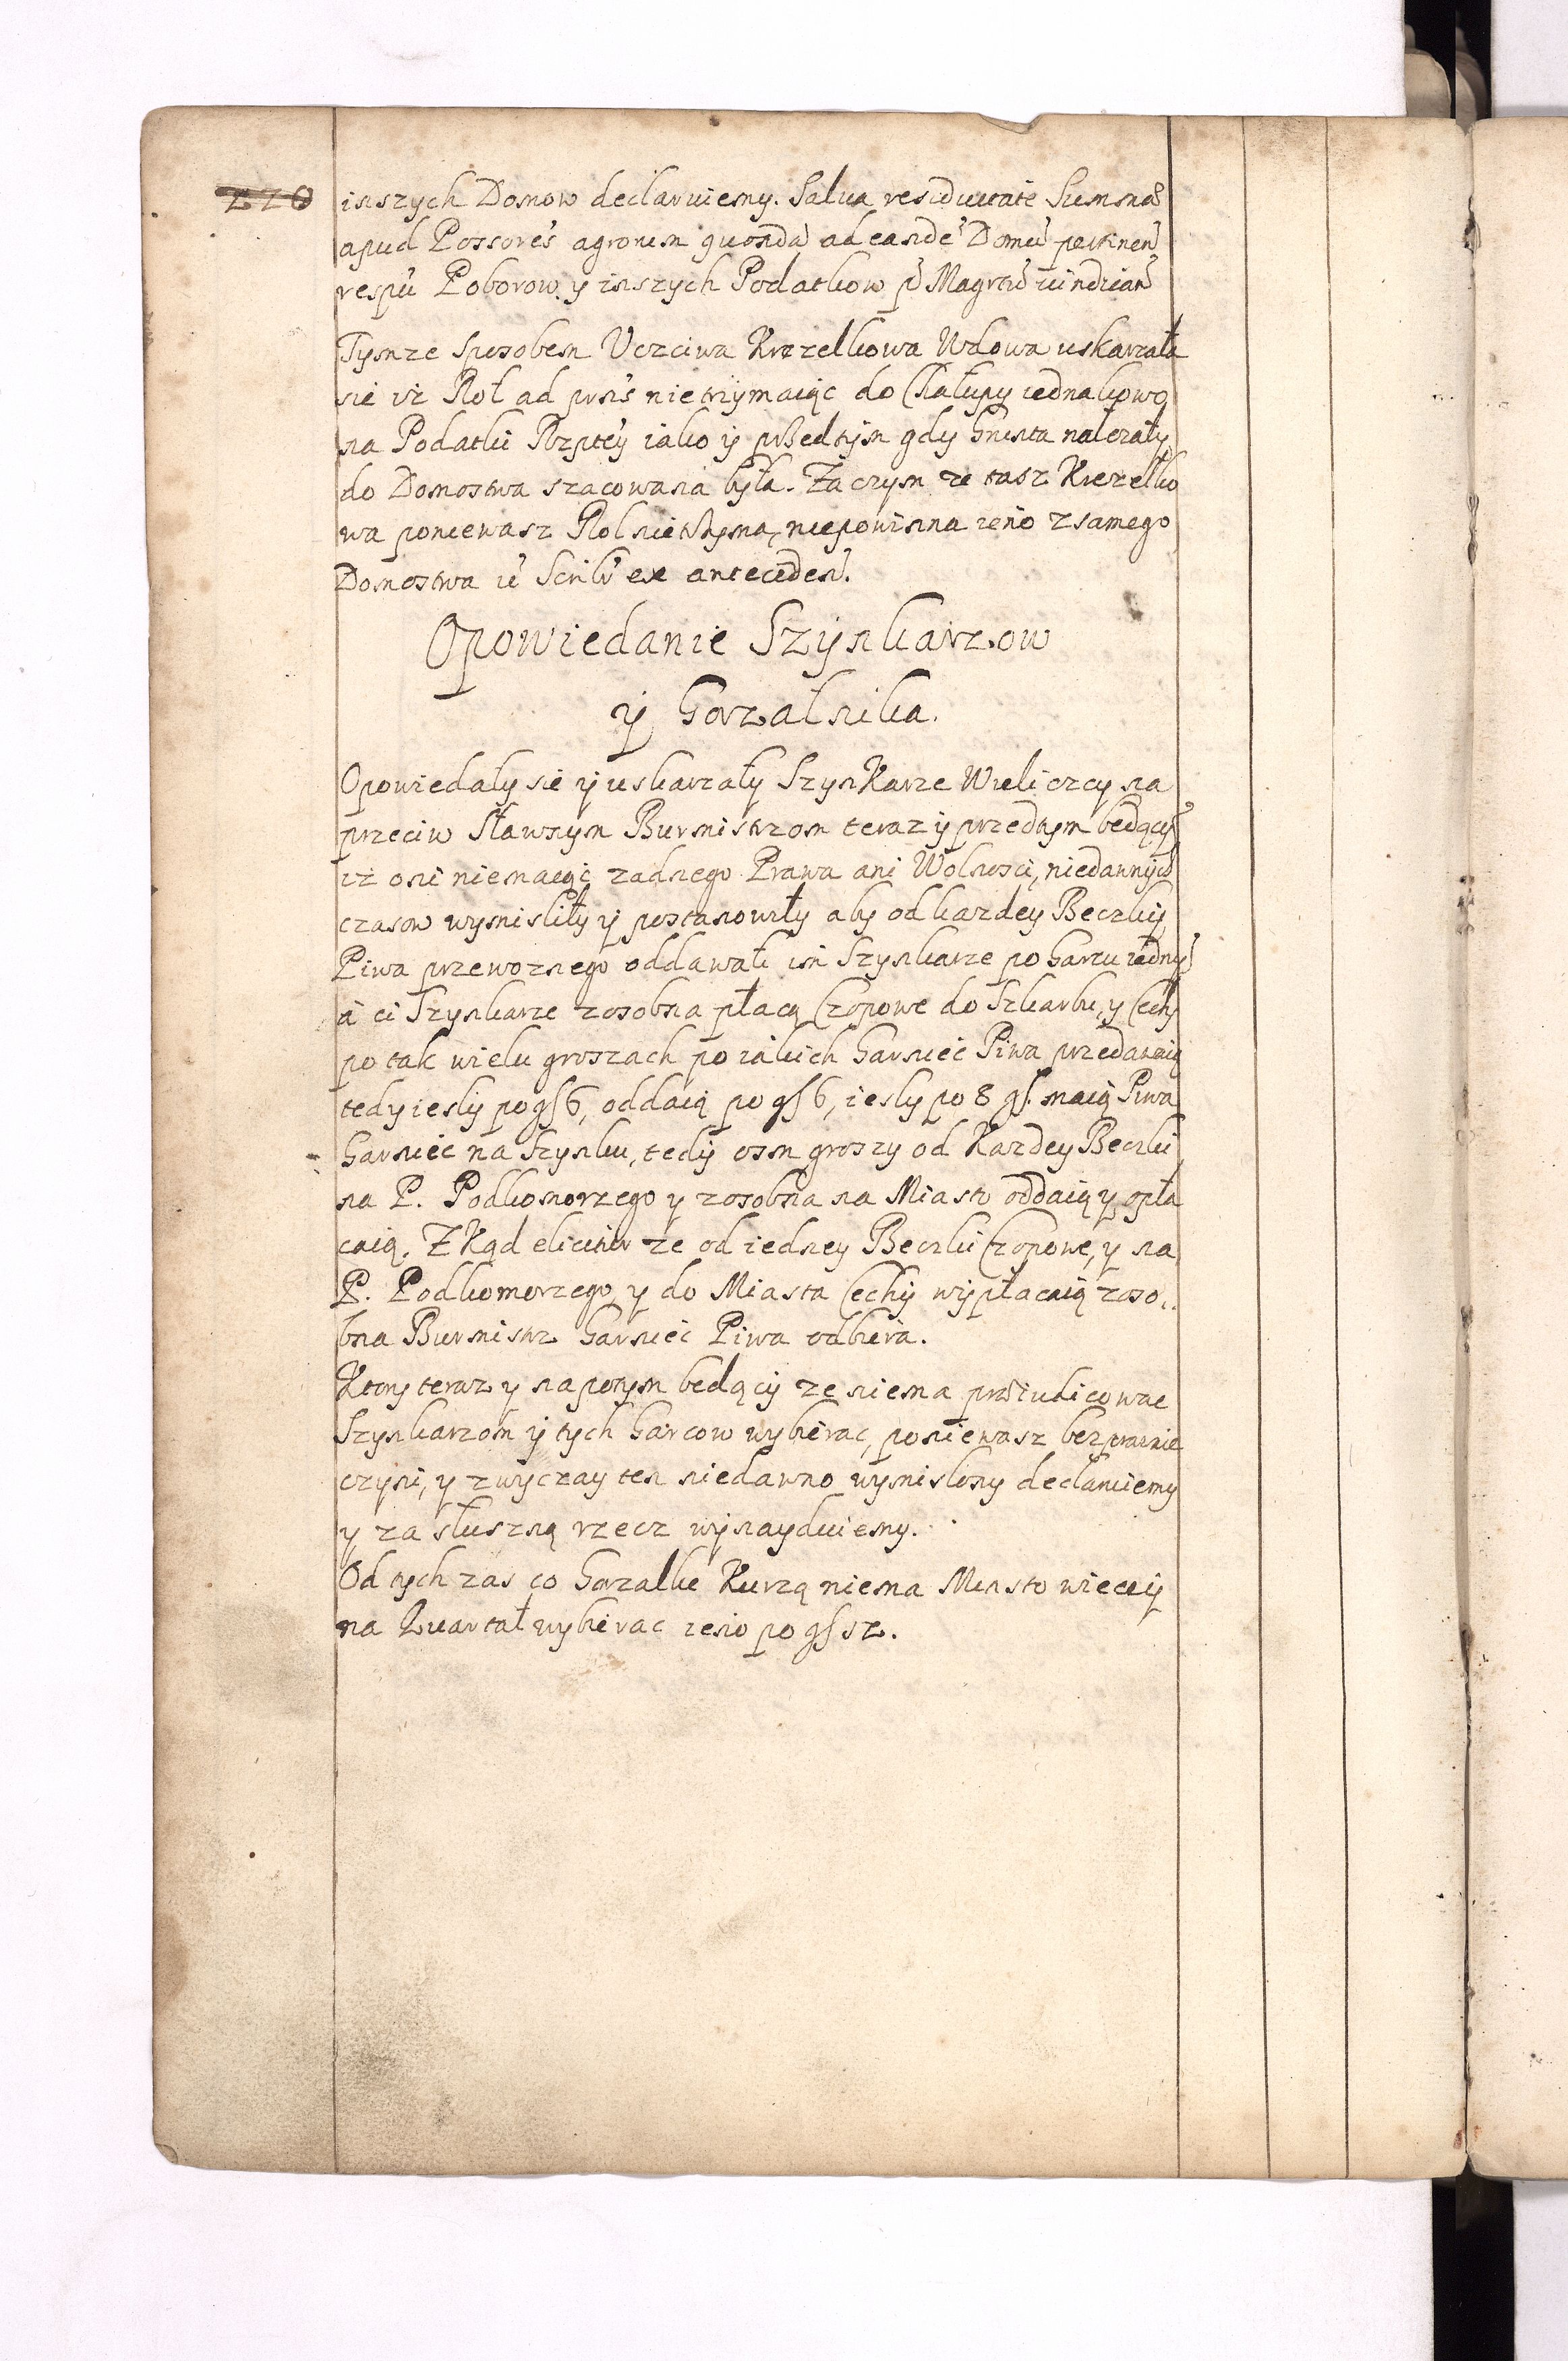 220 inszych Domow declaruiemy. Salva residuitate Summae
apud Possores agrorum quonda ad eande Domu pertinen
respu Poborow y inszych Podatkow p Magrtu uindican
Tymze sposobem Uczciwa Krzelkowa Wdowa uskarzała
sie iż Rol ad prns nietrzymaiąc do Chałupy iednakowo
na Podatki Rzptey iako y przedtym gdy Gruta należały
do Domostwa szacowana była. Zaczym ze taż Krzelko
wa poniewasz Rol nietrzyma, niepowinna ieno z samego
Domostwa ie Scrib ex anteceden.
Opowiedanie Szynkarzow
y Gorzałnika.
Opowiedały sie y uskarzały Szynkarze Wieliczcy na
przeciw Sławnym Burmistrzom teraz y przedtym będący
iż oni niemaiąc zadnego Prawa ani Wolnosci, niedawnych
czasow wymisliły y postanowiły aby od kazdey Beczky
Piwa przewoznego oddawali im Szynkarze po Garcu iedny
a ci Szynkarze zosobna płacą Czopowe do Szkarbu, y Cechy
po tak wielu groszach po iakich Garniec Piwa przedawaią
tedy iesly po gs 6, oddaią po gs 6, iesly po 8 gs. maią Piwa
Garniec na Szynku, tedy osm groszy od Kazdey Beczki
na P. Podkomorzego y zosobna na Miasto oddaią y opła
caią. Z Kąd elicitur ze od iedney Beczki Czopowe, y na
P. Podkomorzego y do Miasta Cechy wypłacaią zoso..
bna Burmistrz Garniec Piwa odbiera.
Ktory teraz y napotym będący ze niema prziudicowac
Szynkarzom y tych Garcow wybierac, poniewasz bezprawnie
czyni, y zwyczay ten niedawno wymislony declaruiemy
y za słuszną rzecz wynayduiemy.
Od tych zas co Gorzalke Kurzą niema Miasto wiecey
na Kwartał wybierac ieno po gs 12.